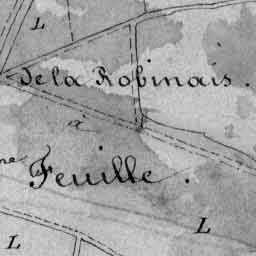 L
de la Robinais.
à
Feuille.
L
L